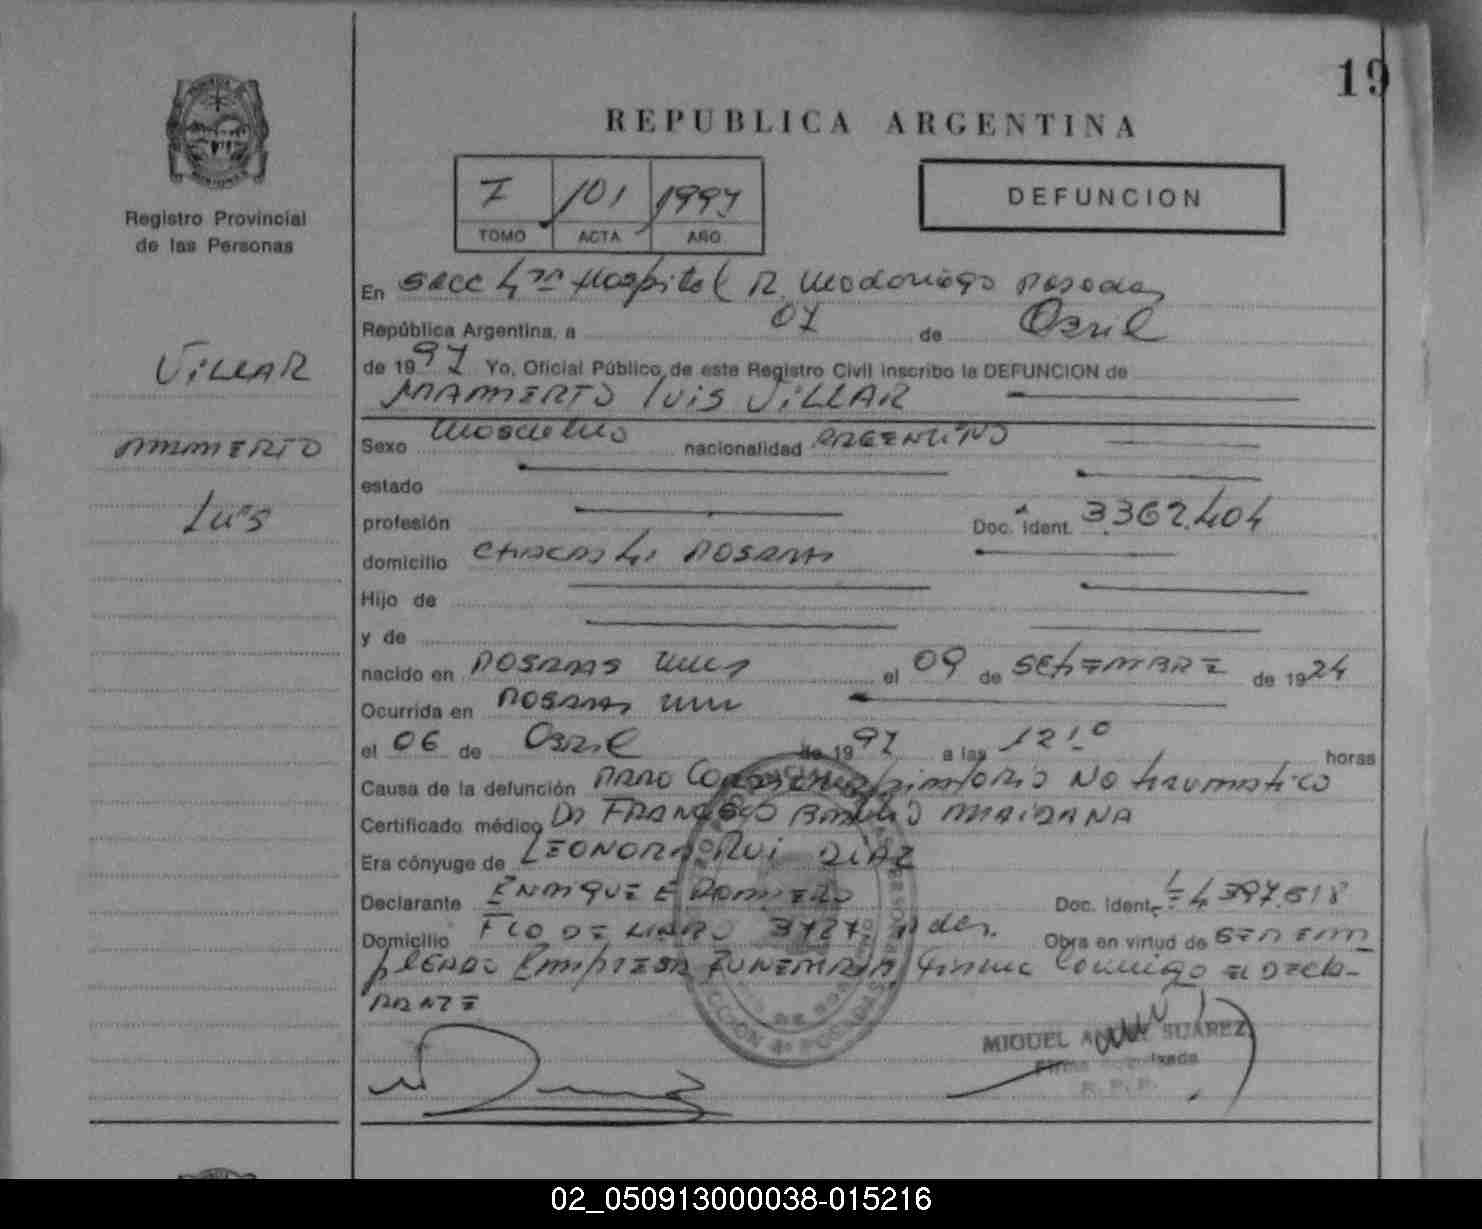 19
REPUBLICA ARGENTINA
DEFUNCION
I 101 1997
TOMO ACTA AÑO
Registro Provincial
de las Personas
VILLAR
MAMERTO
Luis
En Secc 4ta Hospital R. Madariaga Posadas
República Argentina, a 07 de Abril
de 1997 Yo, Oficial Público de este Registro Civil inscribo la DEFUNCION de
MAMERTO LUIS VILLAR
Sexo Masculino nacionalidad ARGENTINO
estado
profesión Doc. Ident. 3.362.404
domicilio CHACRA 4. POSADAS
Hijo de
y de
nacido en POSADAS Mnes el 09 de SETIEMBRE de 1924
Ocurrida en POSADAS Mnes
el 06 de Abril de 1997 a las 12:10 horas
Causa de la defunción PARO Cardiorespiratorio NO traumatico
Certificado médico Dr FRANCISCO MAIDANA
Era cónyuge de LEONORA RUI DIAZ
Declarante ENRIQUE E ROMERO Doc. Ident. L.E 4.397.518
Domicilio FCO DE HARO 3727 Pdas. Obra en virtud de SER EM
PLEADO Empresa FUNERARIA Firma Conmigo EL DECLA-
RANTE
SECCION 4ª POSADAS
MIGUEL A SUAREZ
Firma Autorizada
R. P. P.
02_050913000038-015216